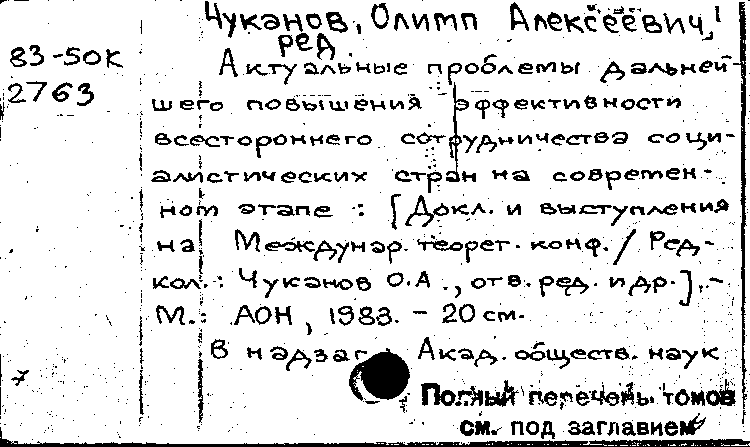 Чуканов, Олимп Алексеевич,
ред.
83-50К
2763
Актуальные проблемы дальней-
шего повышения эффективности
всестороннего сотрудничества соци-
алистических стран на современ-
ном этапе : [Докл. и выступления
на Междунар. теорет. конф. / Ред-
кол.: Чуканов О.А., отв. ред. и др.]. -
М.: АОН, 1983. - 20 см.
В надзаг.: Акад. обществ. наук
7
Полный перечень томов
см. под заглавием